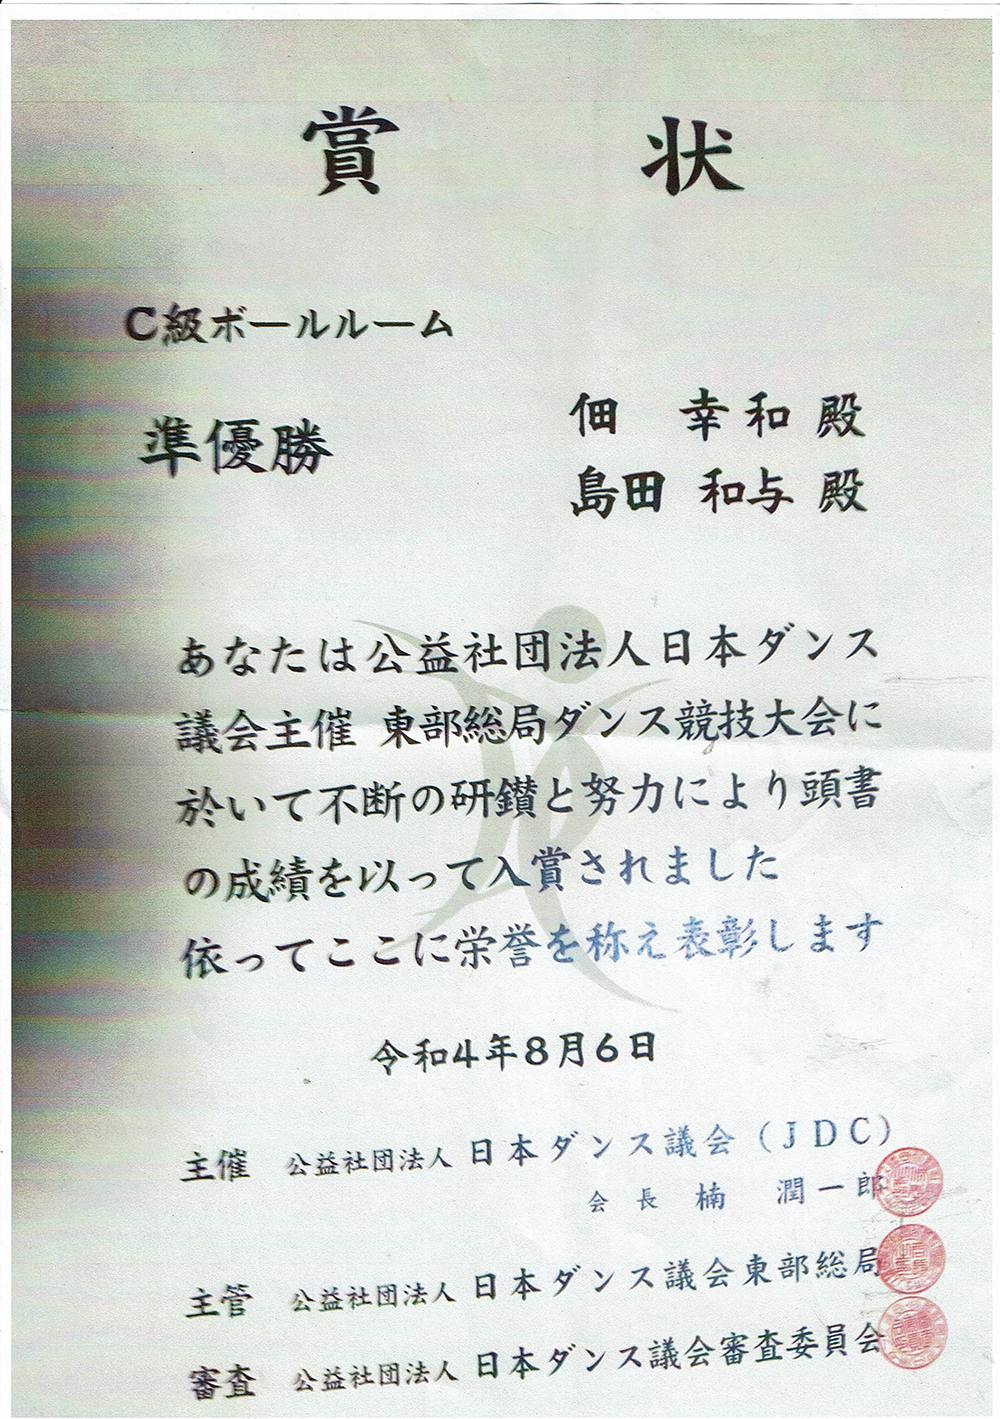 賞状
C級ボールルーム
準優勝
佃 幸和 殿
島田 和与 殿
あなたは公益社団法人日本ダンス
議会主催 東部総局ダンス競技大会に
於いて不断の研鑚と努力により頭書
の成績を以って入賞されました
依ってここに栄誉を称え表彰します
令和4年8月6日
主催 公益社団法人 日本ダンス議会(JDC)
会長 楠 潤一郎
主管 公益社団法人 日本ダンス議会東部総局
審査 公益社団法人 日本ダンス議会審査委員会